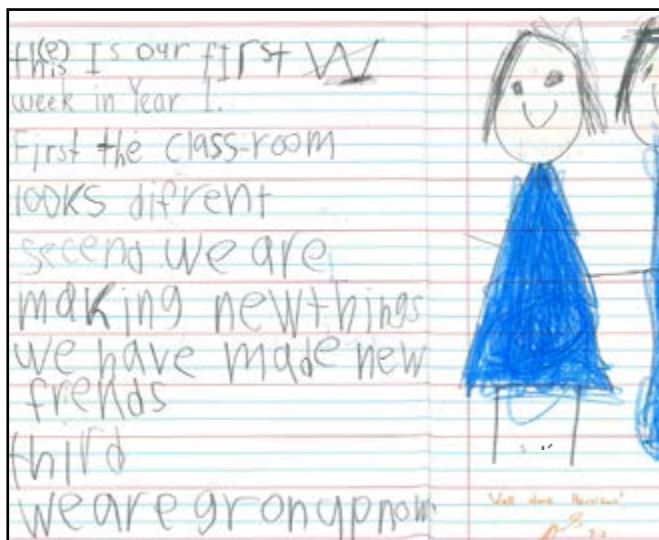 this (e) Is our first W
week in Year 1.
First the class-room
looks difrent
secend we are
making newthings
we have made new
frends
third
weare grongupnow
Well done